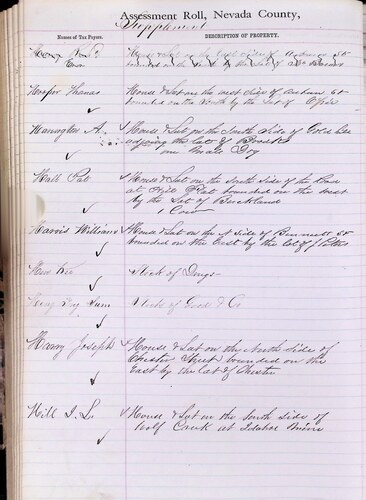 Assessment Roll, Nevada County,
Supplement
Names of Tax Payers.
DESCRIPTION OF PROPERTY.
House & Lot on the East side of Auburn St
bounded on the South by the Lot of
Thomas
House & Lot on the west side of Auburn St
bounded on the North by the Lot of
Harrington A.
House & Lot on the South Side of Gold
adjoining the Lot of
one Small Dog
Hall Pat
House & Lot on the South Side of the Road
at Hill Flat bounded on the west
by the Lot of Buckland
1 Cow
Harris William
House & Lot on the N Side of Bennett St
bounded on the East by the lot of J
Stock of Drugs
Stock of
Harry Joseph
House & Lot on the North side of
Chester Street bounded on the
East by the lot of Chester
Hill J. L.
House & Lot on the South side of
Wolf Creek at Idaho Mine